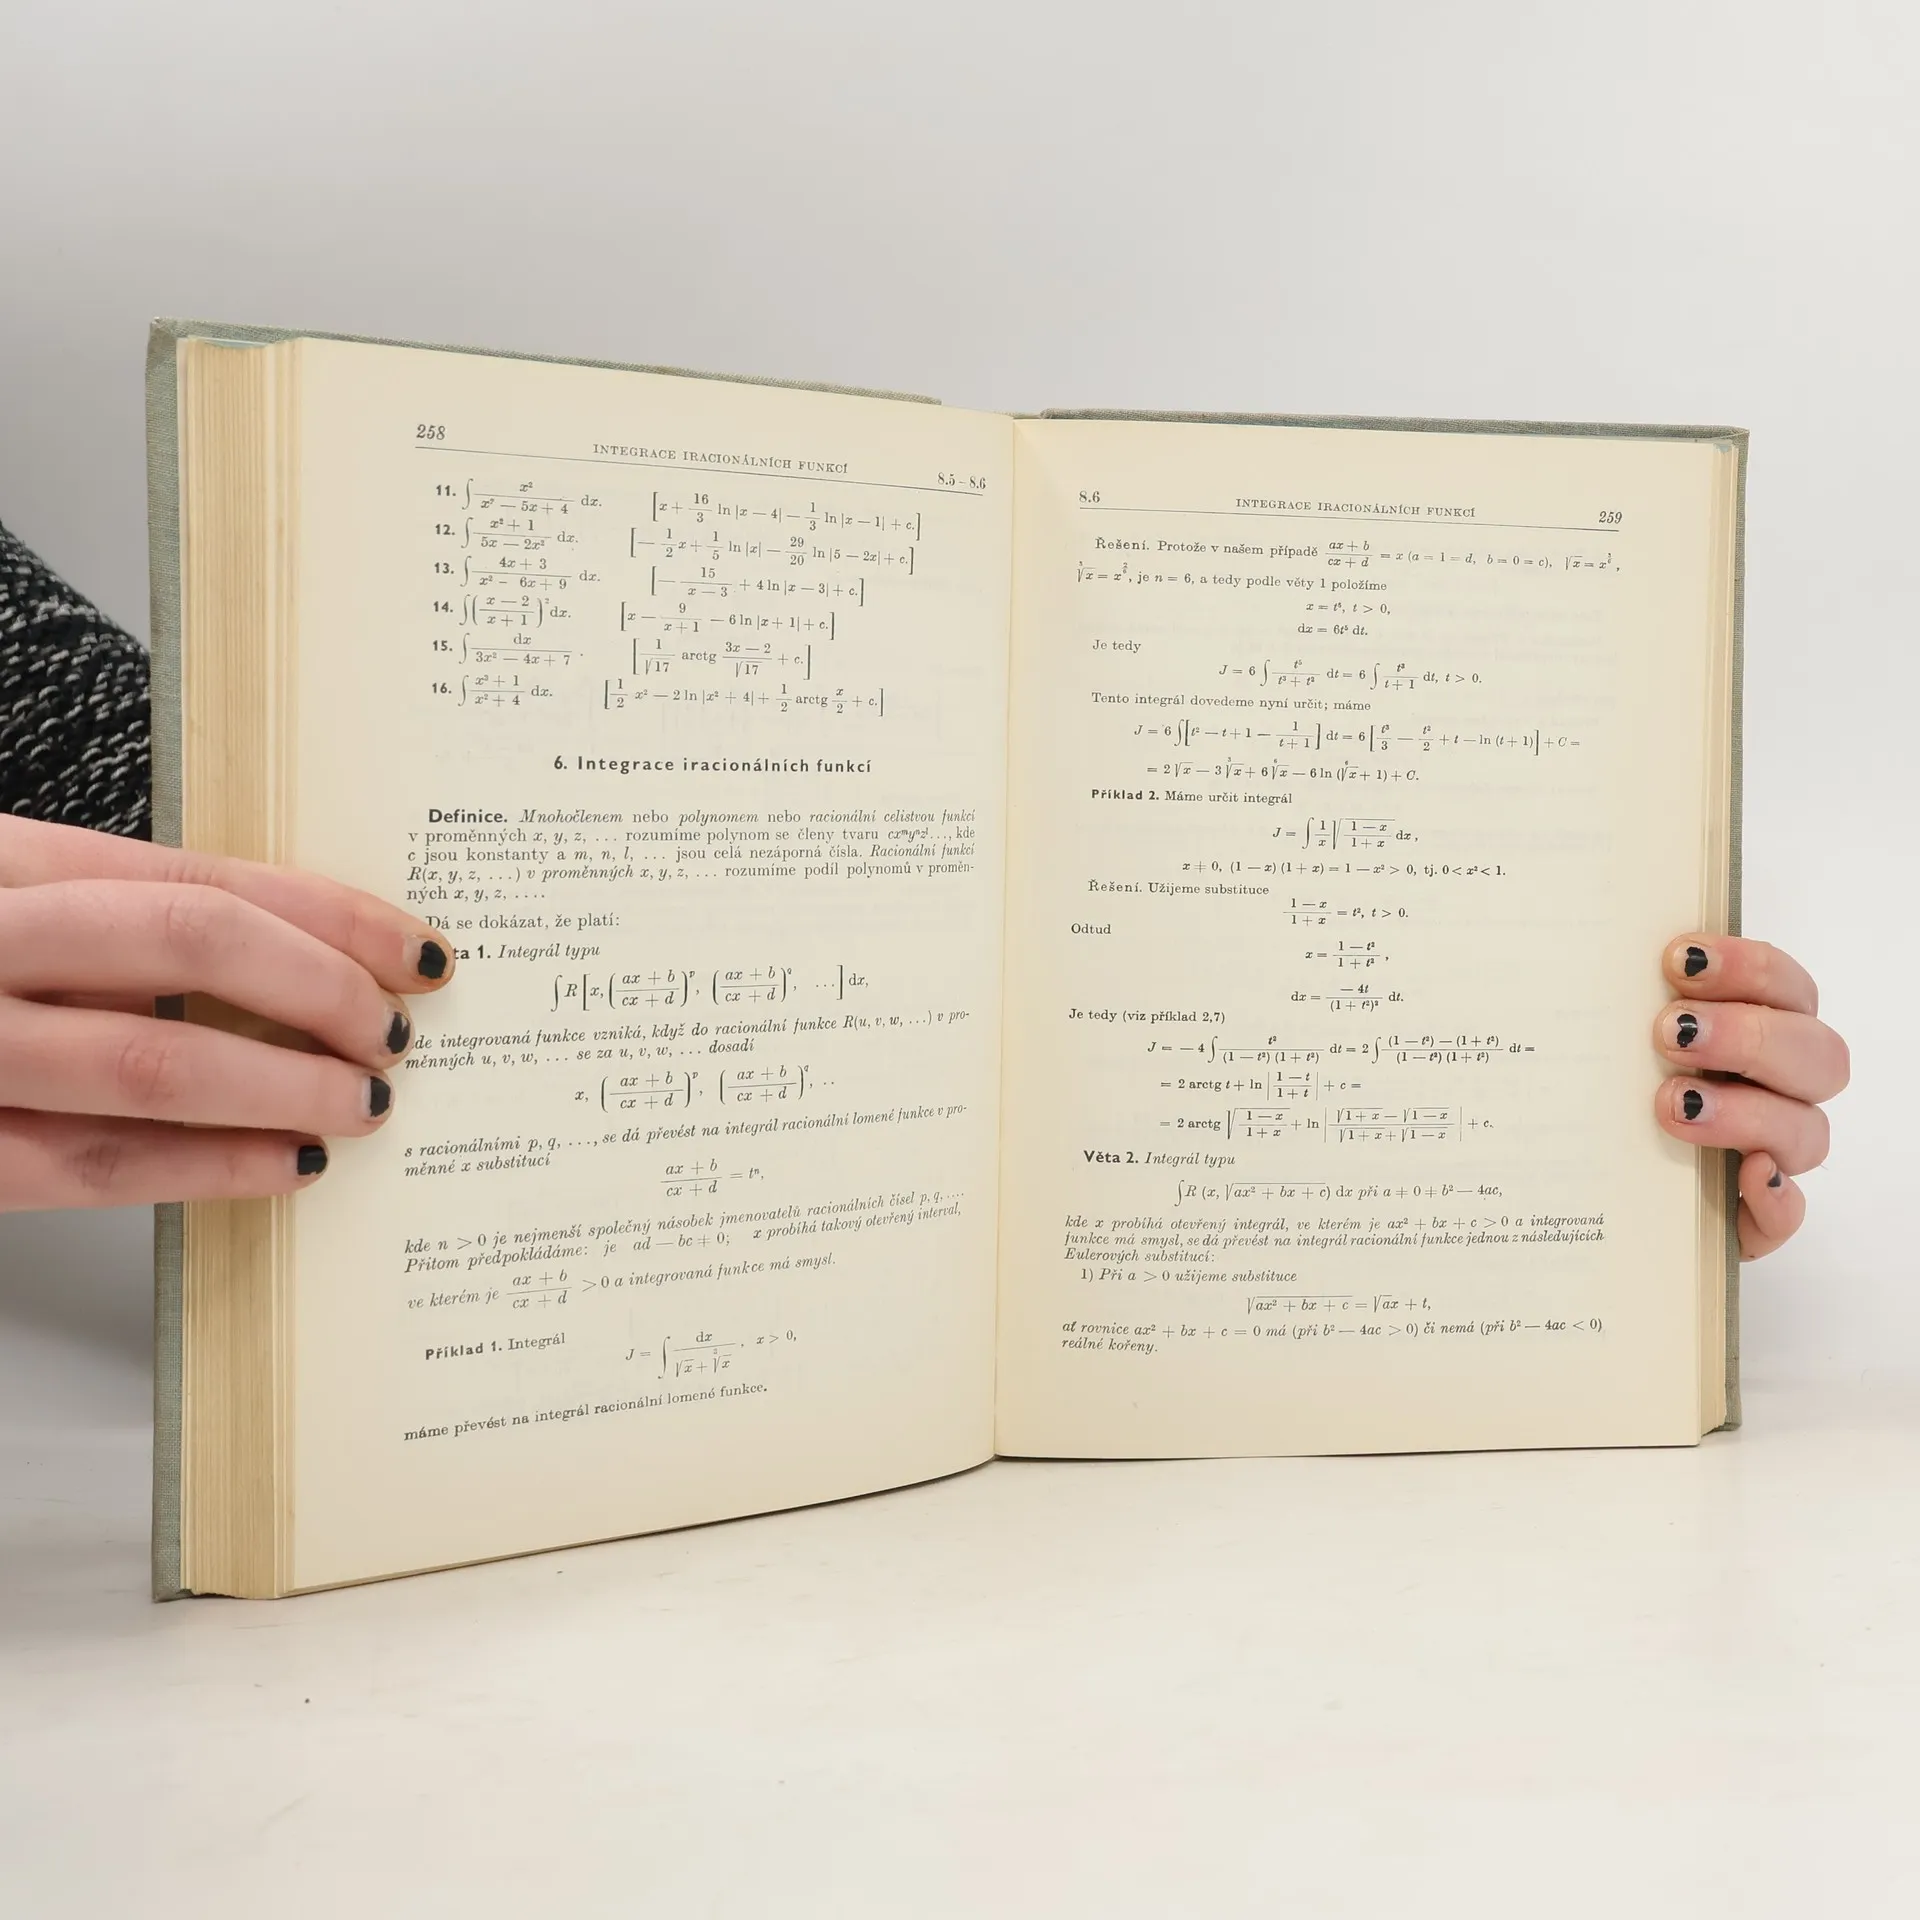 258
INTEGRACE IRACIONÁLNÍCH FUNKCÍ
8.5 – 8.6
11. ∫ x² / (x² — 5x + 4) dx. [x + 16/3 ln |x — 4| — 1/3 ln |x — 1| + c.]
12. ∫ (x² + 1) / (5x — 2x²) dx. [— 1/2 x + 1/5 ln |x| — 29/20 ln |5 — 2x| + c.]
13. ∫ (4x + 3) / (x² — 6x + 9) dx. [— 15 / (x — 3) + 4 ln |x — 3| + c.]
14. ∫ ((x — 2) / (x + 1))² dx. [x — 9 / (x + 1) — 6 ln |x + 1| + c.]
15. ∫ dx / (3x² — 4x + 7) . [1/√17 arctg (3x — 2)/√17 + c.]
16. ∫ (x³ + 1) / (x² + 4) dx. [1/2 x² — 2 ln |x² + 4| + 1/2 arctg x/2 + c.]
6. Integrace iracionálních funkcí
Definice. Mnohočlenem nebo polynomem nebo racionální celistvou funkcí
v proměnných x, y, z, ... rozumíme polynom se členy tvaru cxᵐyⁿzˡ..., kde
c jsou konstanty a m, n, l, ... jsou celá nezáporná čísla. Racionální funkcí
R(x, y, z, ...) v proměnných x, y, z, ... rozumíme podíl polynomů v proměn-
ných x, y, z, ....
Dá se dokázat, že platí:
ta 1. Integrál typu
∫ R [x, ((ax + b)/(cx + d))ᵖ, ((ax + b)/(cx + d))^q, ...] dx,
de integrovaná funkce vzniká, když do racionální funkce R(u, v, w, ...) v pro-
měnných u, v, w, ... se za u, v, w, ... dosadí
x, ((ax + b)/(cx + d))ᵖ, ((ax + b)/(cx + d))^q, ..
s racionálními p, q, ..., se dá převést na integrál racionální lomené funkce v pro-
měnné x substitucí
(ax + b)/(cx + d) = tⁿ,
kde n > 0 je nejmenší společný násobek jmenovatelů racionálních čísel p, q, ....
Přitom předpokládáme: je ad — bc ≠ 0; x probíhá takový otevřený interval,
ve kterém je (ax + b)/(cx + d) > 0 a integrovaná funkce má smysl.
Příklad 1. Integrál J = ∫ dx / (√x + ³√x) , x > 0,
máme převést na integrál racionální lomené funkce.
8.6
INTEGRACE IRACIONÁLNÍCH FUNKCÍ
259
Řešení. Protože v našem případě (ax + b)/(cx + d) = x (a = 1 = d, b = 0 = c), √x = x^(3/6),
³√x = x^(2/6), je n = 6, a tedy podle věty 1 položíme
x = t⁶, t > 0,
dx = 6t⁵ dt.
Je tedy
J = 6 ∫ t⁵/(t³ + t²) dt = 6 ∫ t³/(t + 1) dt, t > 0.
Tento integrál dovedeme nyní určit; máme
J = 6 ∫ [t² — t + 1 — 1/(t + 1)] dt = 6 [t³/3 — t²/2 + t — ln (t + 1)] + C =
= 2 √x — 3 ³√x + 6 ⁶√x — 6 ln (⁶√x + 1) + C.
Příklad 2. Máme určit integrál
J = ∫ 1/x √((1 — x)/(1 + x)) dx ,
x ≠ 0, (1 — x) (1 + x) = 1 — x² > 0, tj. 0 < x² < 1.
Řešení. Užijeme substituce
(1 — x)/(1 + x) = t², t > 0.
Odtud
x = (1 — t²)/(1 + t²) ,
dx = — 4t/(1 + t²)² dt.
Je tedy (viz příklad 2,7)
J = — 4 ∫ t²/((1 — t²) (1 + t²)) dt = 2 ∫ ((1 — t²) — (1 + t²))/((1 — t²) (1 + t²)) dt =
= 2 arctg t + ln |(1 — t)/(1 + t)| + c =
= 2 arctg √((1 — x)/(1 + x)) + ln |(√(1 + x) — √(1 — x))/(√(1 + x) + √(1 — x))| + c.
Věta 2. Integrál typu
∫ R (x, √(ax² + bx + c)) dx při a ≠ 0 ≠ b² — 4ac,
kde x probíhá otevřený integrál, ve kterém je ax² + bx + c > 0 a integrovaná
funkce má smysl, se dá převést na integrál racionální funkce jednou z následujících
Eulerových substitucí:
1) Při a > 0 užijeme substituce
√(ax² + bx + c) = √ax + t,
ať rovnice ax² + bx + c = 0 má (při b² — 4ac > 0) či nemá (při b² — 4ac < 0)
reálné kořeny.